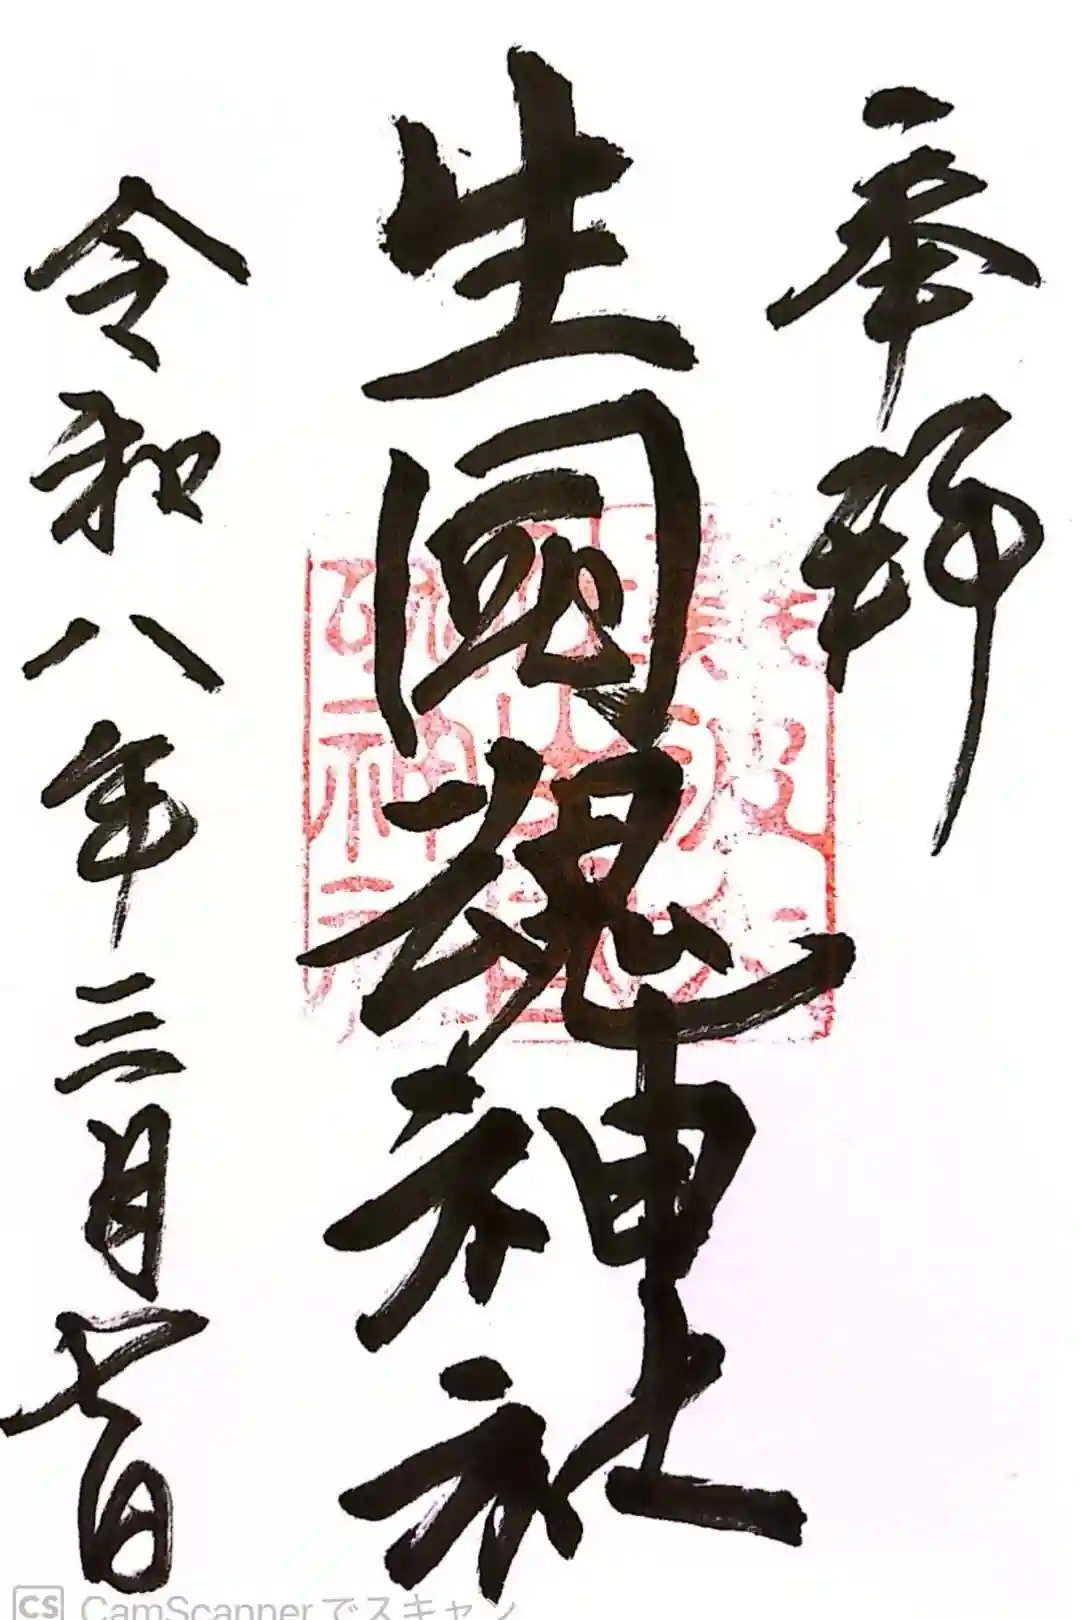 奉拝
生國魂神社
令和八年三月七日
CS CamScannerでスキャン